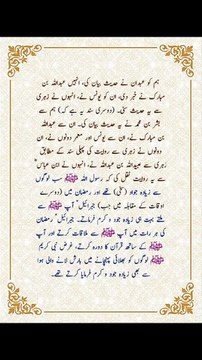 ہم کو عبدان نے حدیث بیان کی، انہیں عبداللہ بن
مبارک نے خبر دی، ان کو یونس نے، انہوں نے زہری
سے یہ حدیث سنی۔ (دوسری سند یہ ہے کہ) ہم سے
بشر بن محمد نے یہ حدیث بیان کی۔ ان سے عبداللہ
بن مبارک نے، ان سے یونس اور معمر دونوں نے، ان
دونوں نے زہری سے روایت کی پہلی سند کے مطابق
زہری سے عبیداللہ بن عبداللہ نے، انہوں نے ابن عباسؓ
سے یہ روایت نقل کی کہ رسول اللہ ﷺ سب لوگوں
سے زیادہ جواد (سخی) تھے اور رمضان میں (دوسرے
اوقات کے مقابلہ میں جب) جبرائیلؑ آپ ﷺ سے
ملتے بہت ہی زیادہ جود و کرم فرماتے۔ جبرائیلؑ رمضان
کی ہر رات میں آپ ﷺ سے ملاقات کرتے اور آپ
ﷺ کے ساتھ قرآن کا دورہ کرتے، غرض نبی کریم
ﷺ لوگوں کو بھلائی پہنچانے میں بارش لانے والی ہوا
سے بھی زیادہ جود و کرم فرمایا کرتے تھے۔